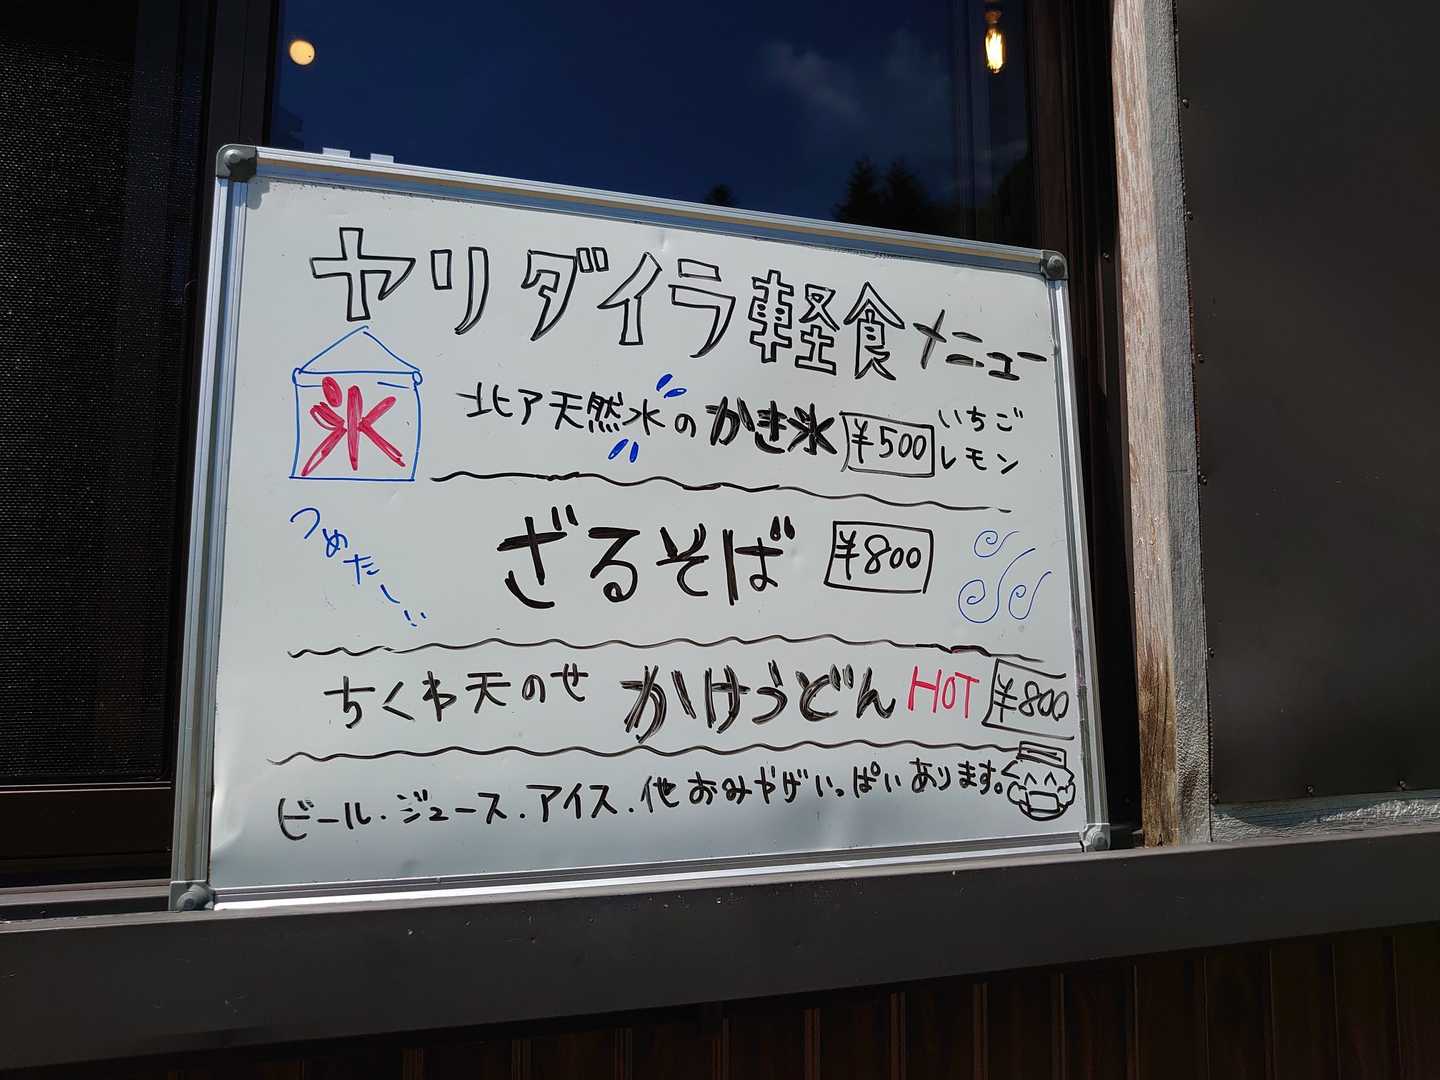 ヤリダイラ軽食メニュー
氷
北ア天然水のかき氷 ¥500 いちご
レモン
つめたーい!!
ざるそば ¥800
ちくわ天のせ かけうどん HOT ¥800
ビール・ジュース・アイス・他おみやげいっぱいあります。